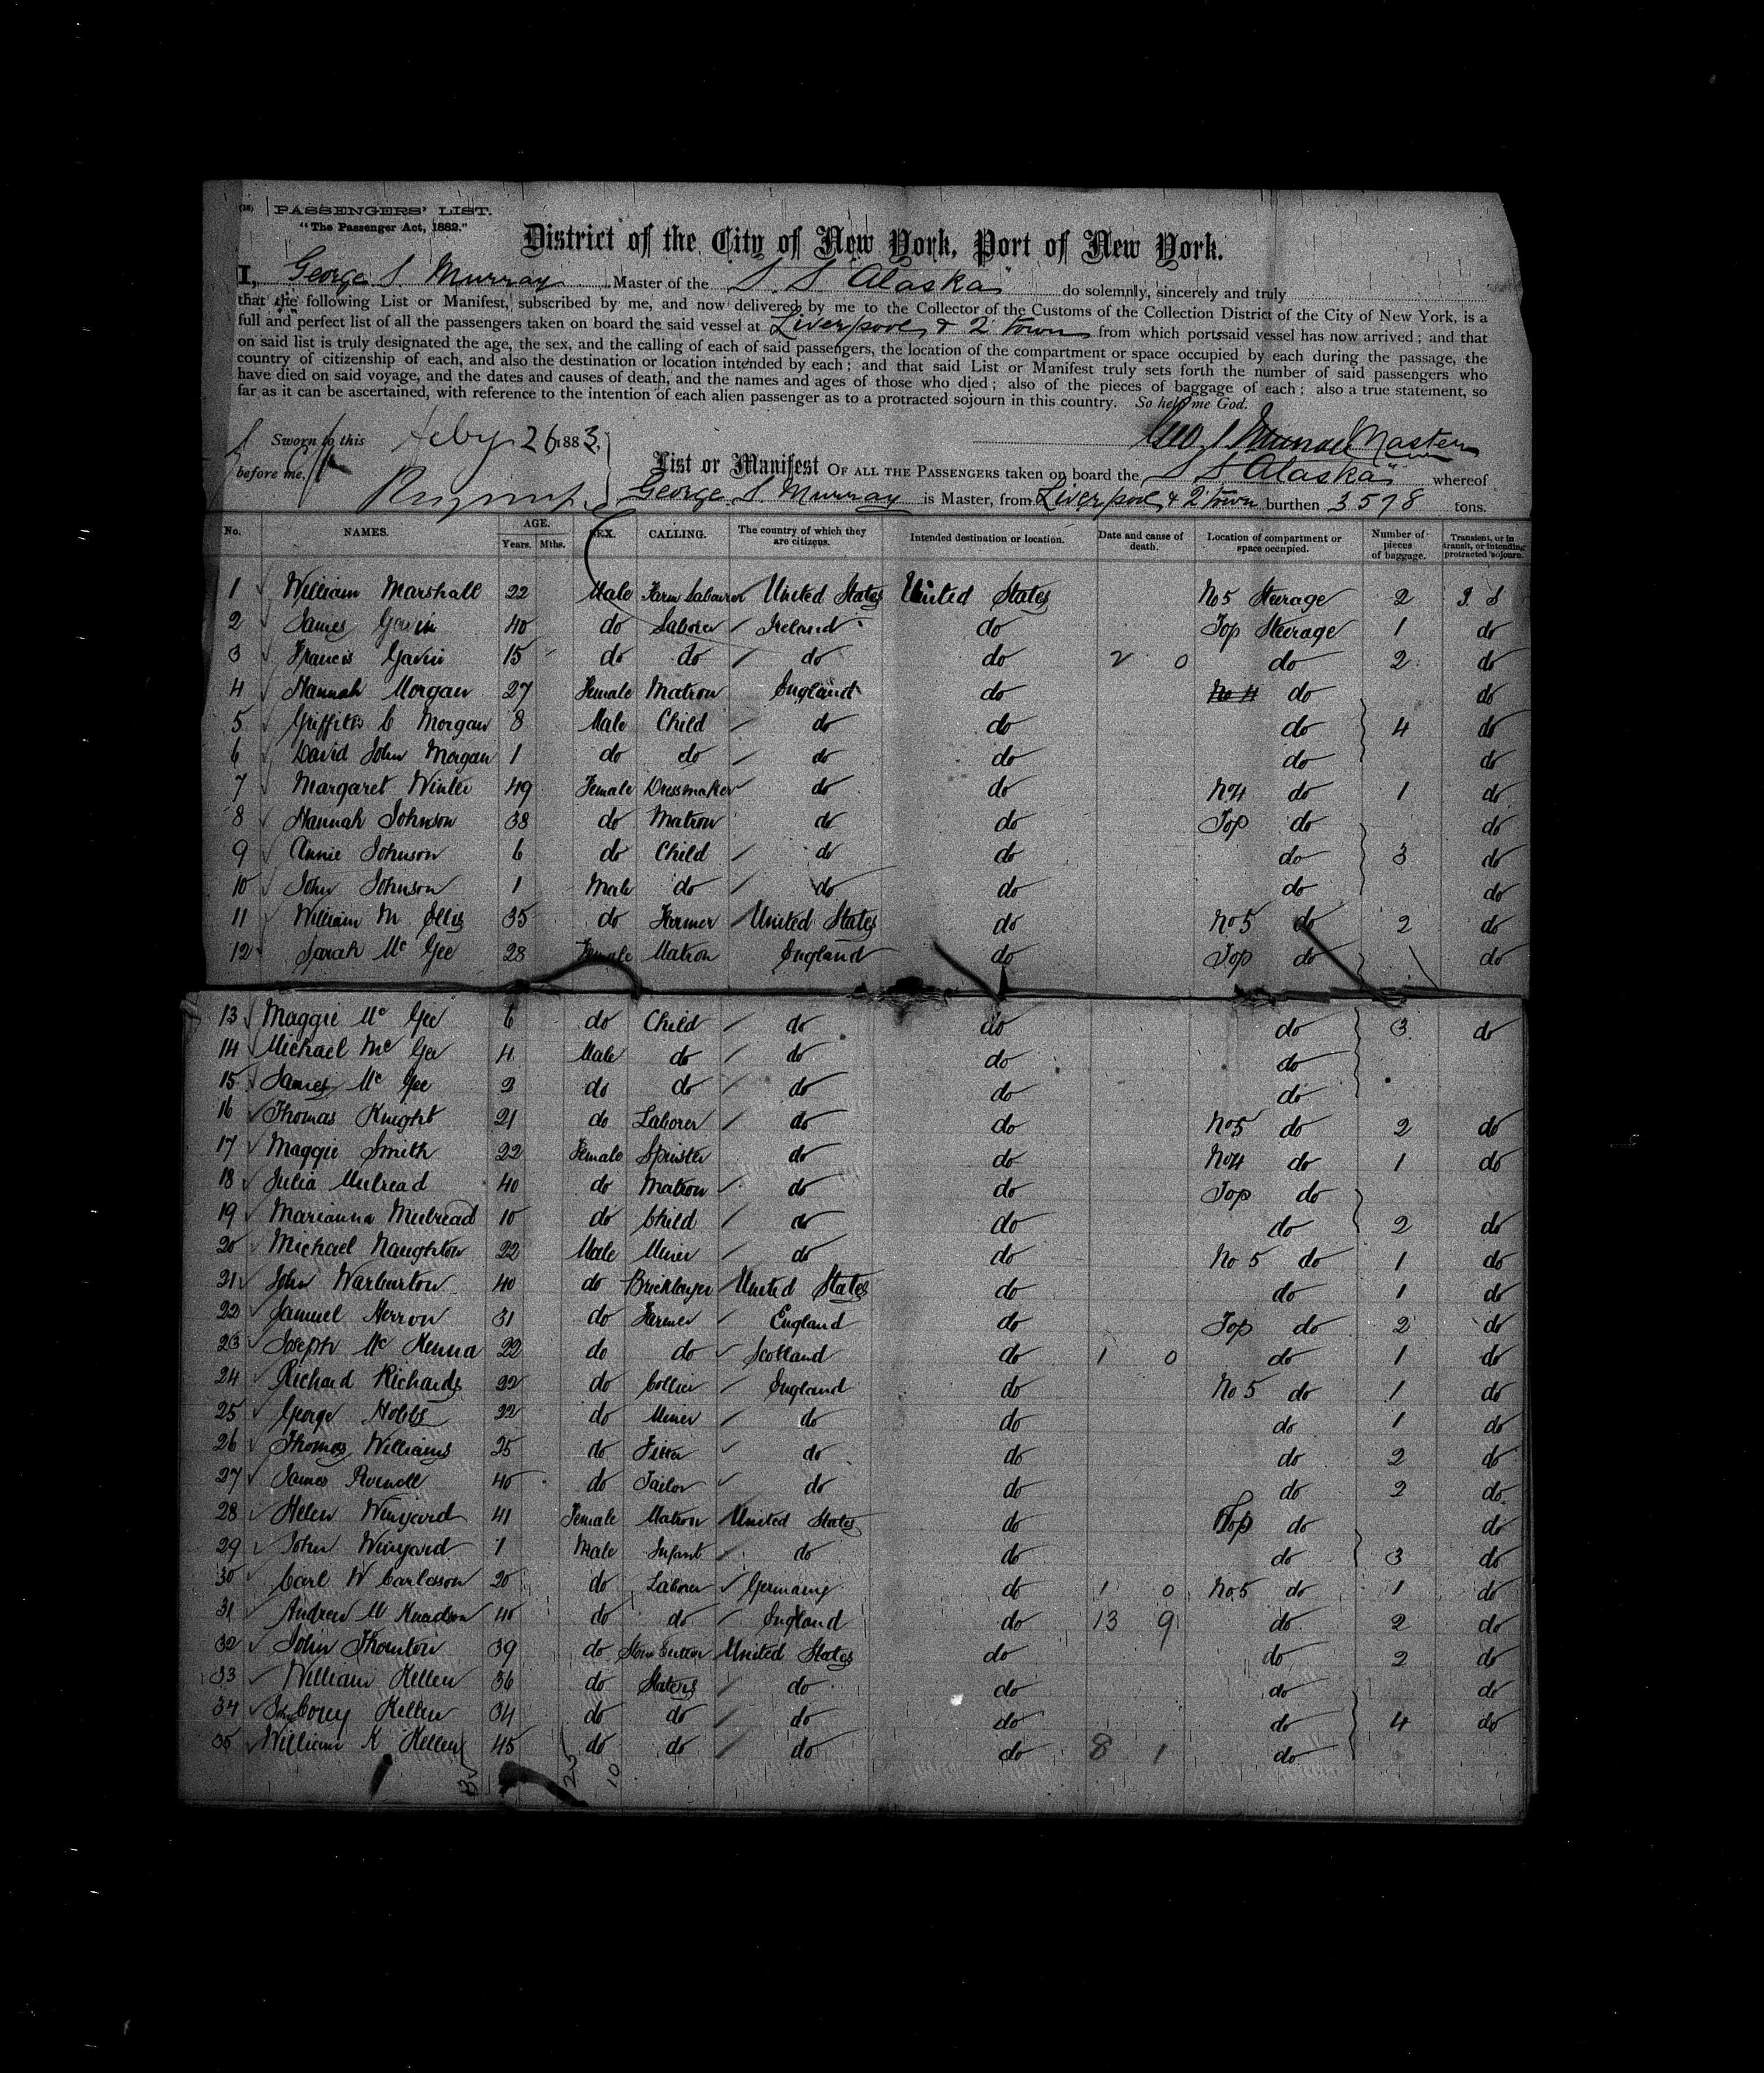 (18) PASSENGERS' LIST.
"The Passenger Act, 1882."
District of the City of New York, Port of New York.
I, George S. Murray Master of the S. S "Alaska" do solemnly, sincerely and truly
that the following List or Manifest, subscribed by me, and now delivered by me to the Collector of the Customs of the Collection District of the City of New York, is a
full and perfect list of all the passengers taken on board the said vessel at Liverpool & 2 Town from which ports said vessel has now arrived; and that
on said list is truly designated the age, the sex, and the calling of each of said passengers, the location of the compartment or space occupied by each during the passage, the
country of citizenship of each, and also the destination or location intended by each; and that said List or Manifest truly sets forth the number of said passengers who
have died on said voyage, and the dates and causes of death, and the names and ages of those who died; also of the pieces of baggage of each; also a true statement, so
far as it can be ascertained, with reference to the intention of each alien passenger as to a protracted sojourn in this country. So help me God.
Sworn to this Feby 26 1883 Geo S Murray Master
before me,
List or Manifest OF ALL THE PASSENGERS taken on board the S S "Alaska" whereof
George S. Murray is Master, from Liverpool & 2 Town burthen 3578 tons.
No. NAMES. AGE. Years. Mths. SEX. CALLING. The country of which they are citizens. Intended destination or location. Date and cause of death. Location of compartment or space occupied. Number of pieces of baggage. Transient, or in transit, or intending protracted sojourn.
1 William Marshall 22 Male Farm Labourer United States United States No 5 Steerage 2 P. S
2 James Gavin 40 do Laborer Ireland do Top Steerage 1 do
3 Francis Gavin 15 do do do do 2 0 do 2 do
4 Hannah Morgan 27 Female Matron England do No 4 do do
5 Griffith C Morgan 8 Male Child do do do 4 do
6 David John Morgan 1 do do do do do do
7 Margaret Winter 49 Female Dressmaker do do No 4 do 1 do
8 Hannah Johnson 38 do Matron do do Top do do
9 Annie Johnson 6 do Child do do do 3 do
10 John Johnson 1 Male do do do do do
11 William M Ellis 35 do Farmer United States do No 5 do 2 do
12 Sarah Mc Gee 28 Female Matron England do Top do do
13 Maggie Mc Gee 6 do Child do do do 3 do
14 Michael Mc Gee 4 Male do do do do
15 James Mc Gee 2 do do do do do
16 Thomas Knight 21 do Laborer do do No 5 do 2 do
17 Maggie Smith 22 Female Spinster do do No 4 do 1 do
18 Julia Mulread 40 do Matron do do Top do
19 Marianna Mulread 10 do Child do do do 2 do
20 Michael Naughton 22 Male Miner do do No 5 do 1 do
21 John Warburton 40 do Bricklayer United States do do 1 do
22 Samuel Herron 31 do Farmer England do Top do 2 do
23 Joseph Mc Kenna 22 do do Scotland do 1 0 do 1 do
24 Richard Richards 22 do Collier England do No 5 do 1 do
25 George Hobbs 22 do Miner do do do 1 do
26 Thomas Williams 25 do Fitter do do do 2 do
27 James 40 do Tailor do do do 2 do
28 Helen Winyard 41 Female Matron United States do Top do do
29 John Winyard 1 Male Infant do do do 3 do
30 Carl W Carlsson 20 do Laborer Germany do 1 0 No 5 do 1 do
31 Andrew M Knadson 40 do do England do 13 9 do 2 do
32 John Thornton 39 do Stone Cutter United States do do 2 do
33 William Kellew 36 do Slaters do do do do
34 Corey Kellew 34 do do do do do 4 do
35 William K Kellew 45 do do do do 8 1 do
25 10